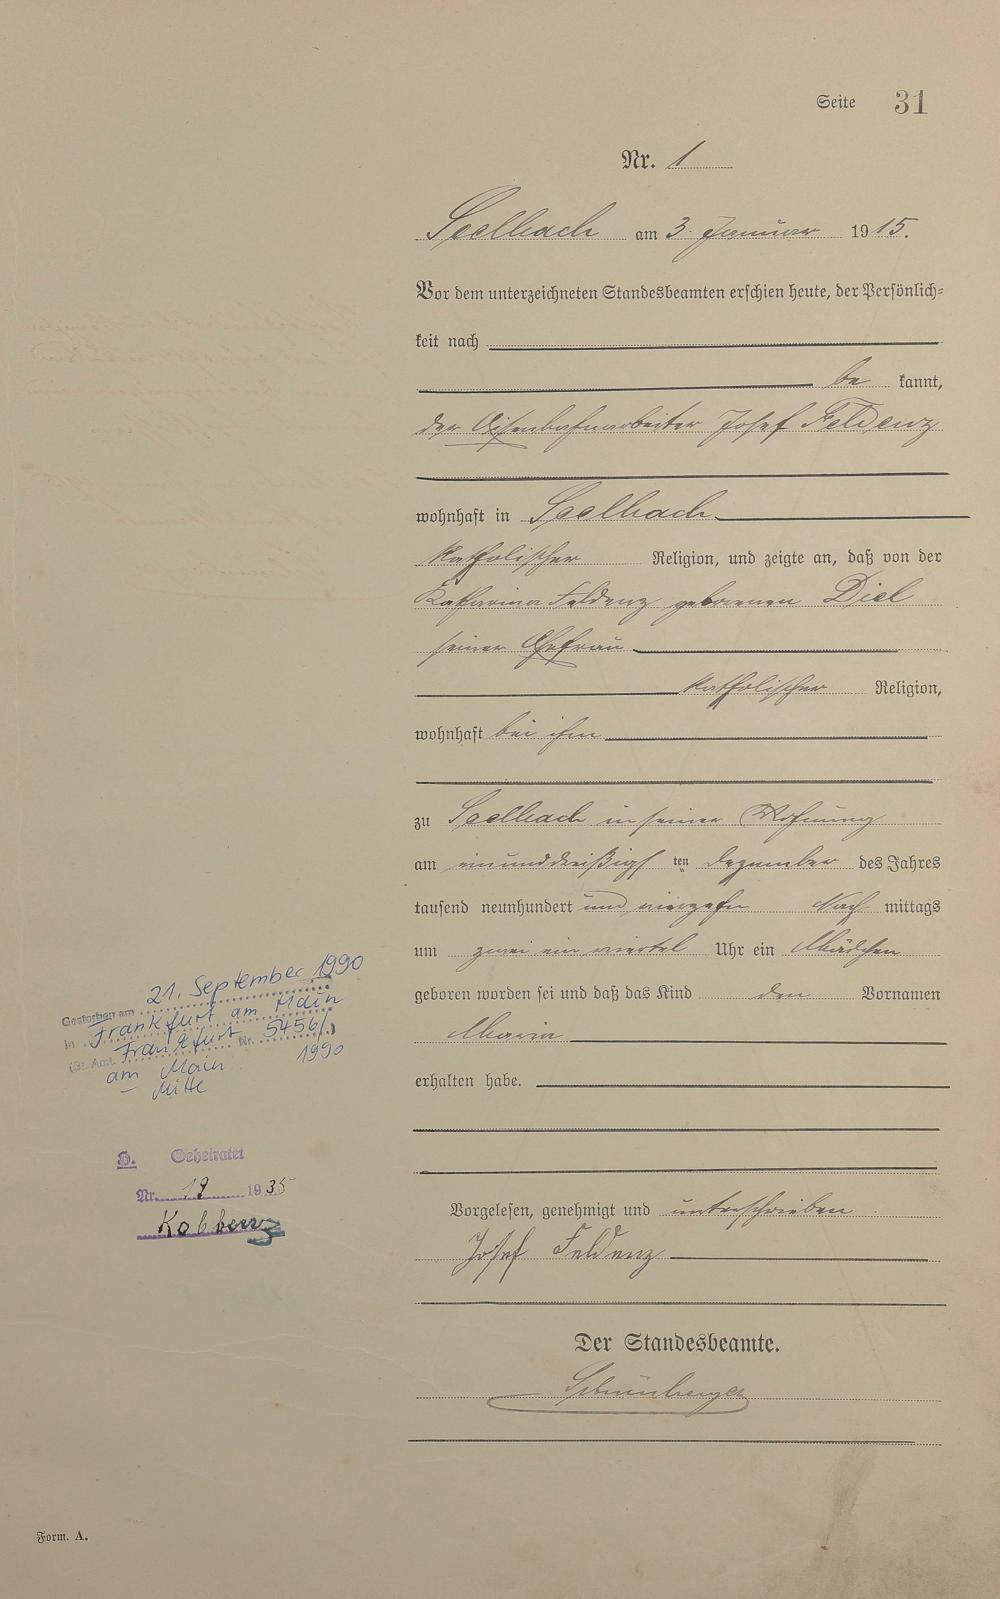 Seite 31
Nr. 1
Seelbach am 3. Januar 1915.
Vor dem unterzeichneten Standesbeamten erschien heute, der Persönlich-
keit nach
be kannt,
der Eisenbahnarbeiter Josef Feldenz
wohnhaft in Seelbach
katholischer Religion, und zeigte an, daß von der
Katharina Feldenz geborenen Diel
seiner Ehefrau
katholischer Religion,
wohnhaft bei ihm
zu Seelbach in seiner Wohnung
am einunddreißigsten Dezember des Jahres
tausend neunhundert und vierzehn Nach mittags
um zwei ein viertel Uhr ein Mädchen
geboren worden sei und daß das Kind den Vornamen
Maria
erhalten habe.
Vorgelesen, genehmigt und unterschrieben
Josef Feldenz
Der Standesbeamte.
Gestorben am 21. September 1990
in Frankfurt am Main
(St. Amt Frankfurt Nr. 5456/.)
am Main 1990
– Mitte
H. Geheiratet
Nr. 19 1935
Form. A.